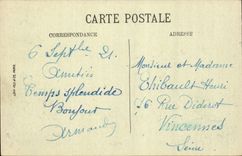 CARTE POSTALE
CORRESPONDANCE
ADRESSE
6 Septbre 21.
Amitiés
Temps splendide
Bonjour
Armand
Monsieur et Madame
Thibault Henri
26 Rue Diderot
Vincennes
Seine